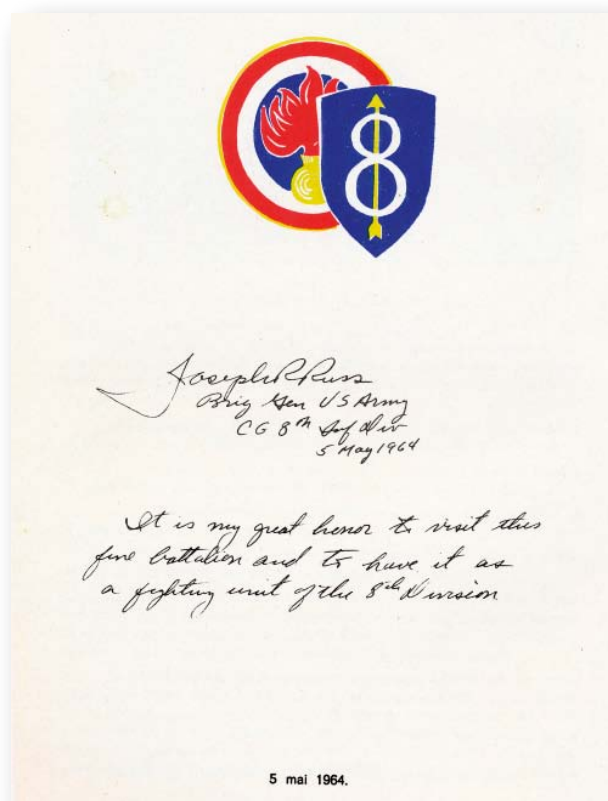 8
Joseph R Russ
Brig Gen US Army
CG 8th Inf Div
5 May 1964
It is my great honor to visit this
fine battalion and to have it as
a fighting unit of the 8th Division
5 mai 1964.